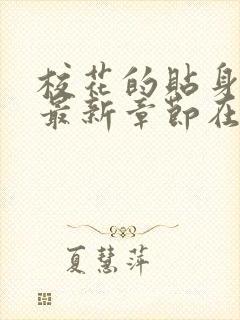 校花的贴身
最新章节在
夏慧萍